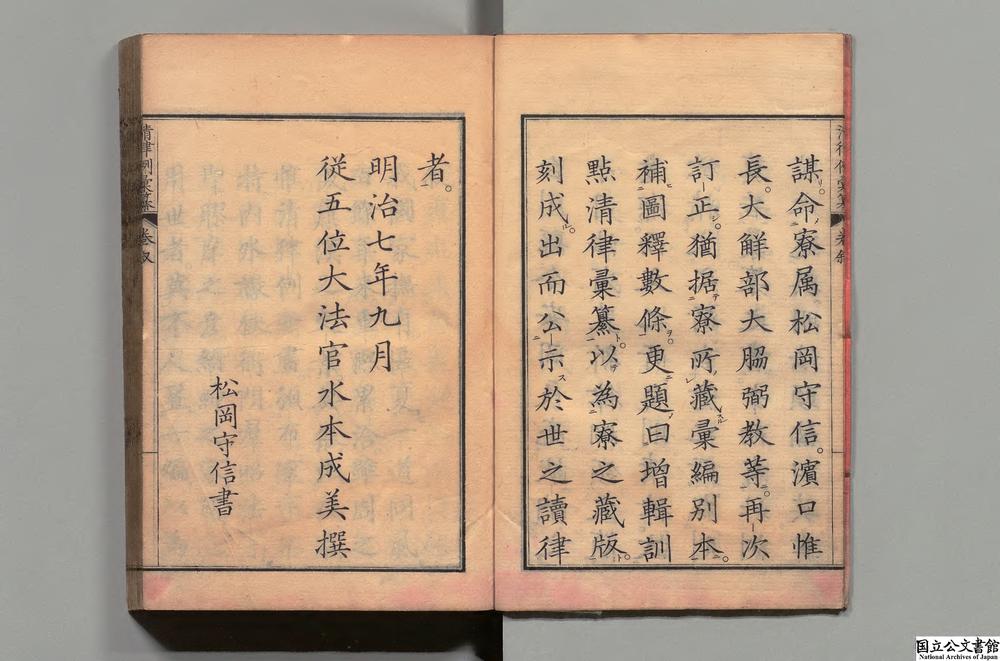 謀命寮属松岡守信。濱口惟
長。大解部大脇弼教等。再次
訂正。猶据寮所藏彙編別本。
補圖釋數條。更題曰增輯訓
點清律彙纂。以為寮之藏版。
刻成出而公示於世之讀律
者。
明治七年九月
從五位大法官水本成美撰
松岡守信書
国立公文書館
National Archives of Japan